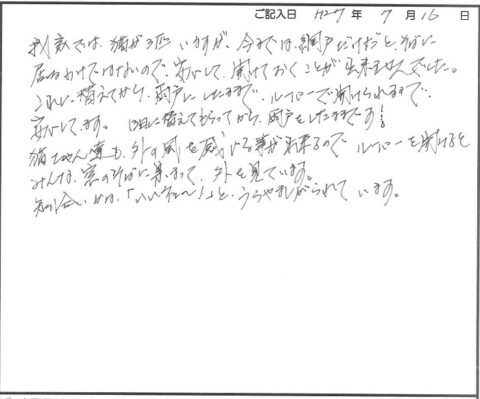 ご記入日 H27年 7月 16日
我家では、猫が3匹いますが、今までは、網戸だけだと、そばに
居るわけではないので、安心して、開けておくことが出来ませんでした。
これに替えてから、雨戸にしたままで、ルーバーで開けられるので、
安心してます。 替えてもらってから、雨戸をしたままです!
猫ちゃん達も、外の風を感じる事が出来るので ルーバーを開けると
みんな、窓のそばに集まって、外を見ています。
知り合いからは、「いいね〜!」と、うらやましがられて います。